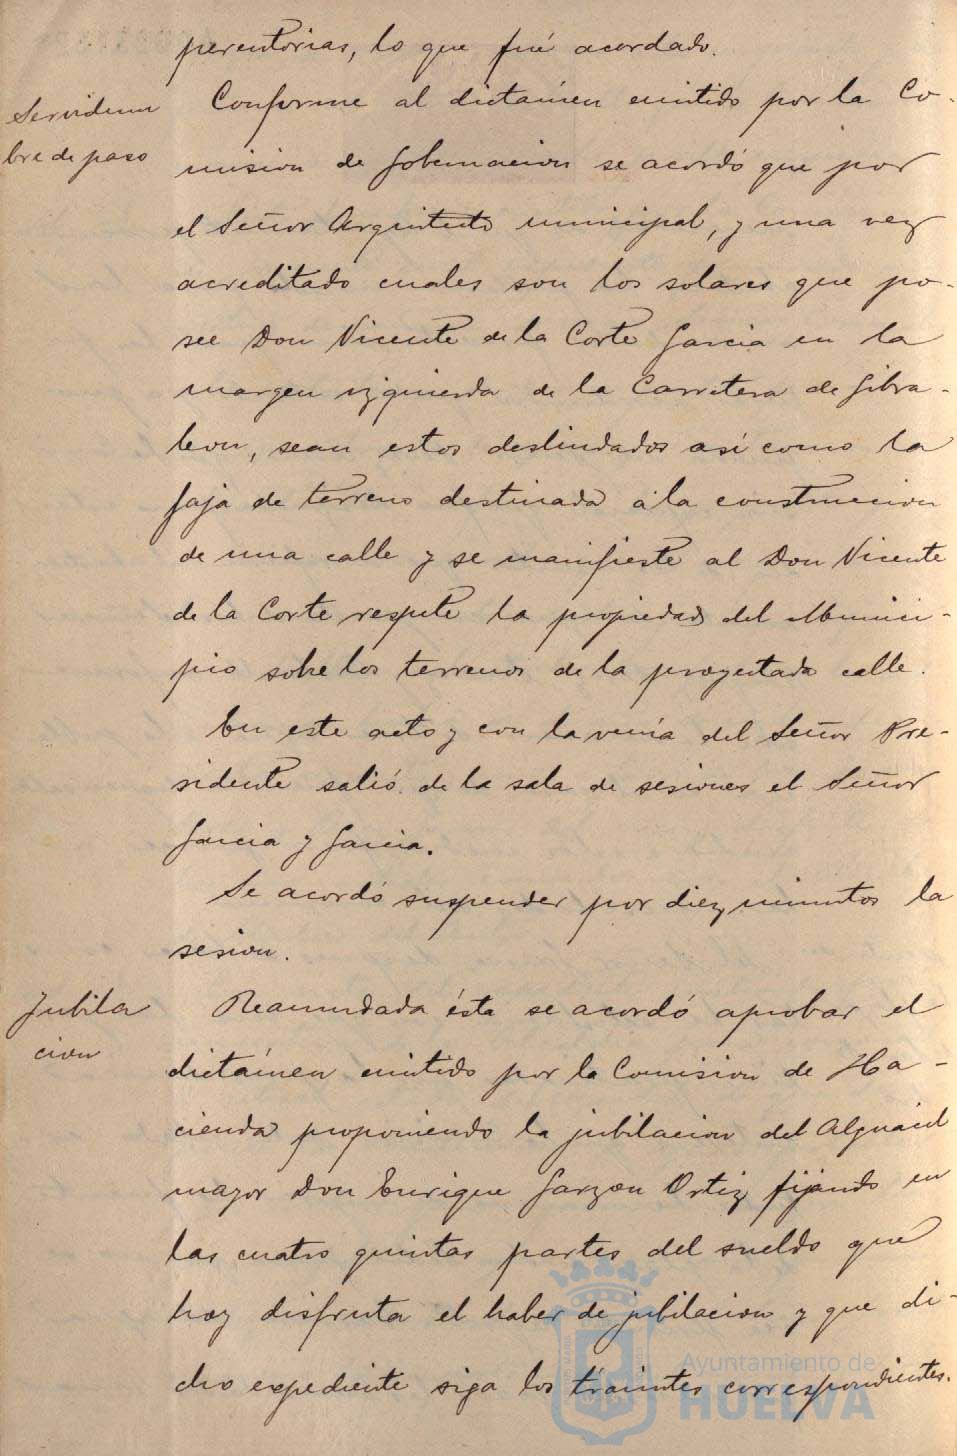 perentorias, lo que fué acordado.
Servidum
bre de paso
Conforme al dictámen emitido por la Co-
mision de Gobernacion se acordó que por
el Señor Arquitecto municipal, y una vez
acreditado cuales son los solares que po-
see Don Vicente de la Corte Garcia en la
margen izquierda de la Carretera de Gibra-
leon, sean estos deslindados así como la
faja de terreno destinada á la construccion
de una calle y se manifieste al Don Vicente
de la Corte respete la propiedad del Munici-
pio sobre los terrenos de la proyectada calle.
En este acto y con la venia del Señor Pre-
sidente salió de la sala de sesiones el Señor
Garcia y Garcia.
Se acordó suspender por diez minutos la
sesion.
Jubila
cion
Reanudada ésta se acordó aprobar el
dictámen emitido por la Comision de Ha-
cienda proponiendo la jubilacion del Alguacil
mayor Don Enrique Garzon Ortiz fijando en
las cuatro quintas partes del sueldo que
hoy disfruta el haber de jubilacion y que di-
cho expediente siga los trámites correspondientes.
Ayuntamiento de
HUELVA